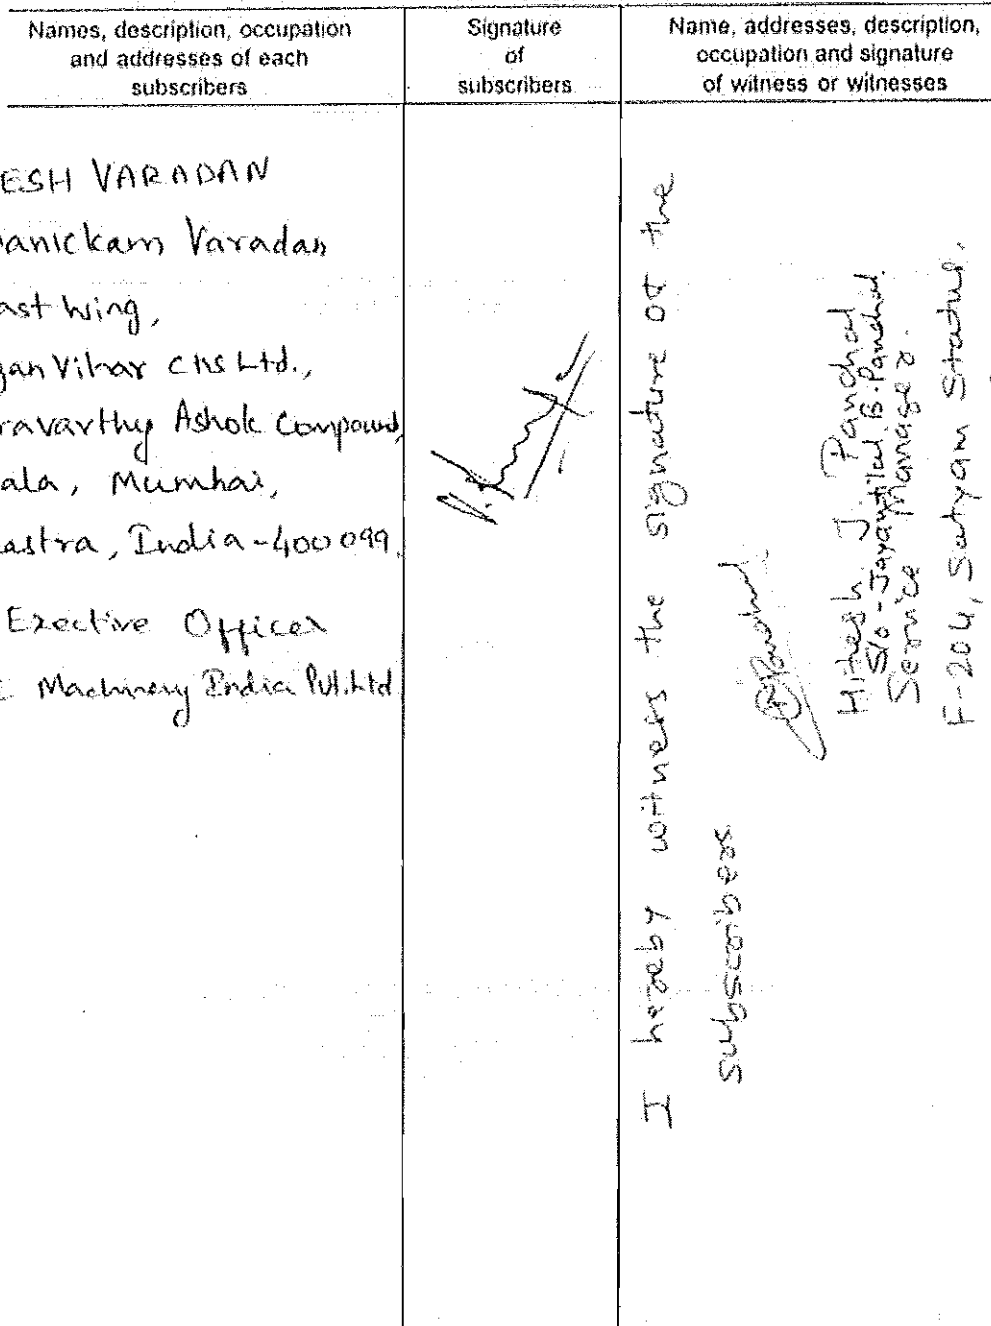 Names, description, occupation
and addresses of each
subscribers
Signature
of
subscribers
Name, addresses, description,
occupation and signature
of witness or witnesses
ESH VARADAN
anickam Varadan
ast wing,
gan Vihar CHS Ltd.,
ravarthy Ashok Compound,
ala, Mumbai,
astra, India-400099.
Exective Officer
Machinery India Pvt. Ltd
I hereby witness the signature of the
subscriber
Hitesh J. Panchal
S/o - Jayantilal B. Panchal.
Service Manager.
F-204, Satyam Status,